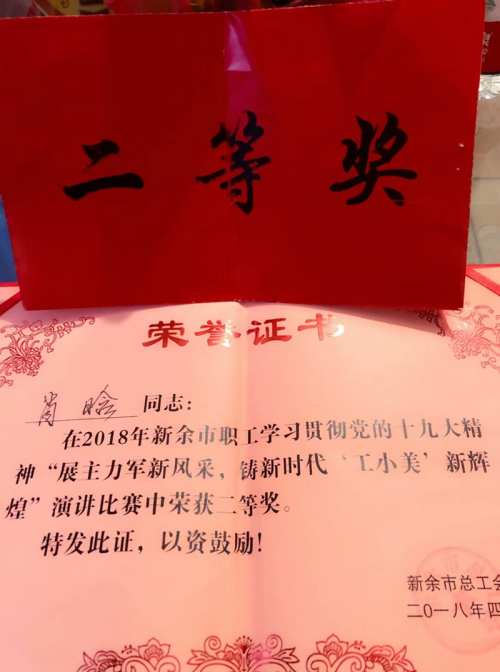 二等奖
荣誉证书
肖晗 同志:
在2018年新余市职工学习贯彻党的十九大精
神“展主力军新风采,铸新时代‘工小美’新辉
煌”演讲比赛中荣获二等奖。
特发此证，以资鼓励!
新余市总工会
二〇一八年四